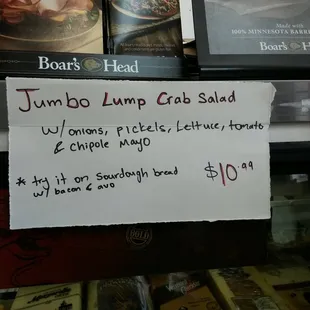 Made with
100% MINNESOTA BARRE
Boar's Head
Boar's H
Jumbo Lump Crab Salad
w/onions, pickels, Lettuce, tomato
& chipole Mayo
* try it on Sourdough bread
w/ bacon & avo
$10.99
BOLD